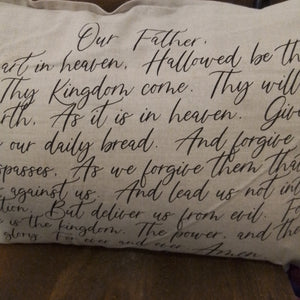 Our Father,
art in heaven, Hallowed be th
Thy Kingdom come. Thy will
rth, As it is in heaven. Giv
our daily bread. And forgive
spasses, As we forgive them tha
against us. And lead us not in
tion, But deliver us from evil. Fo
is the kingdom, The power, and the
glory. For ever and ever. Amen.